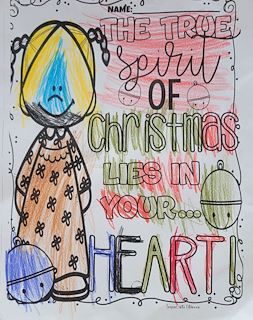 NAME:
THE TRUE
spirit
OF
christmas
LIES IN
YOUR...
HEART!